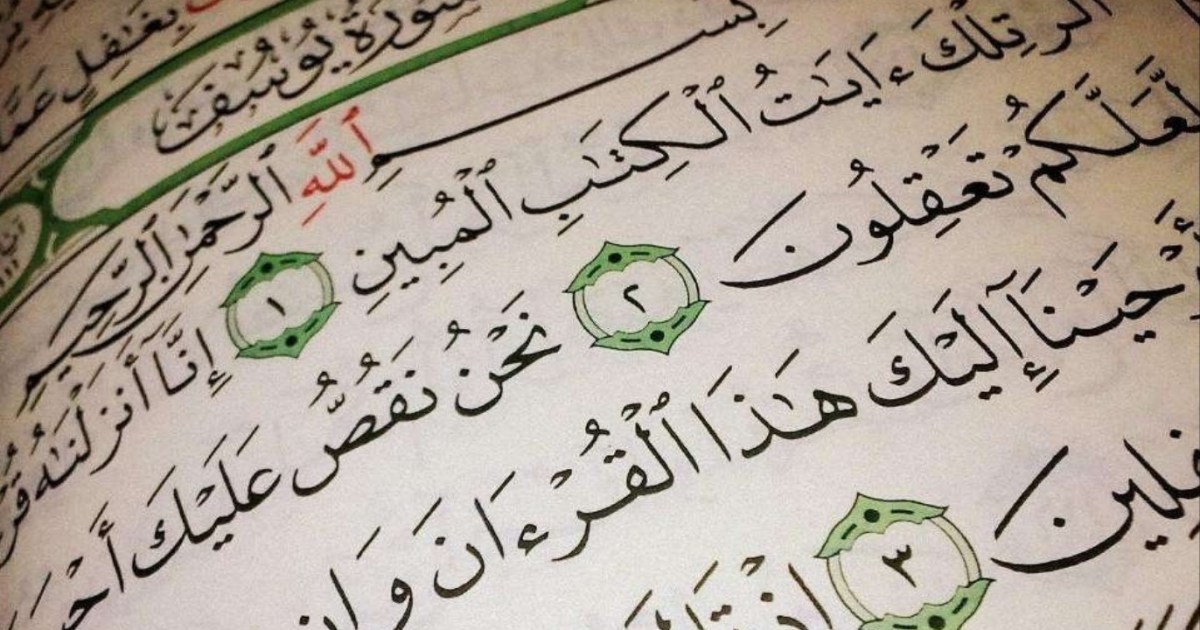 بِغَٰفِلٍ عَمَّا
سُورَةُ يُوسُفَ
بِسْمِ ٱللَّهِ ٱلرَّحْمَٰنِ ٱلرَّحِيمِ
الٓر تِلْكَ ءَايَٰتُ ٱلْكِتَٰبِ ٱلْمُبِينِ ١ إِنَّآ أَنزَلْنَٰهُ
لَّعَلَّكُمْ تَعْقِلُونَ ٢ نَحْنُ نَقُصُّ عَلَيْكَ
أَوْحَيْنَآ إِلَيْكَ هَٰذَا ٱلْقُرْءَانَ وَإِن
٣ إِذْ قَالَ